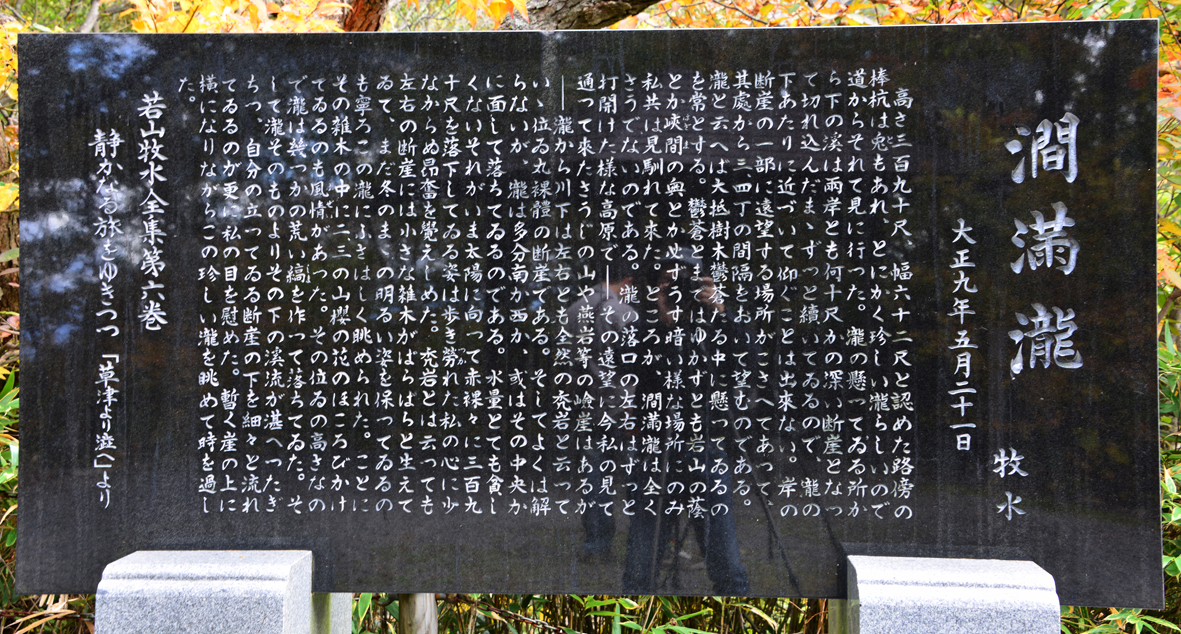 澗満瀧
牧水
大正九年五月二十一日
高さ三百九十尺、幅六十二尺と認めた路傍の
棒杭は兎もあれ、とにかく珍しい瀧らしいので
道からそれて見に行った。瀧の懸ってゐる所か
ら下の溪は両岸とも何十尺かの深い断崖となっ
て切れ込んだまゝずっと續いてゐるので、瀧の
下あたりに近づいて仰ぐことは出來ない。岸の
断崖の一部に遠望する場所がこさへてあって、
其處から三、四丁の間隔をおいて望むのである。
瀧と云へば大抵樹木鬱蒼たる中に懸ってゐるの
を常とする。鬱蒼とまではゆかずとも岩山の蔭
とか峽間の奥とか必ずうす暗い様な場所にのみ
私共は見馴れて来た。ところが、澗満瀧は全く
さうでないのである。瀧の落口の左右はずっと
打開けた様な高原で―その遠望に今私の見て
通って来たさうじの山や燕岩等の嶮崖はあるが
―瀧から川下は左右とも全然の禿岩と云って
いゝ位る丸裸體の断崖である。そしてよくは解
らないが、瀧は多分南か西か、或はその中央か
に面して落ちてゐるのである。水量とても貪し
くないそれがいま太陽に向って赤裸々に三百九
十尺を落下してゐる姿は歩き勞れた私の心に少
なからぬ昂奮を覺えしめた。禿岩とは云っても
左右の断崖には小さな雑木がばらばらと生えて
ゐて、まだ冬のまゝの明るい姿を保ってゐるの
も寧ろこの瀧にふさはしく眺められた。ことに
その雑木の中に二三の山櫻の花のほころびかけ
てゐるのも風情があった。その位ゐの高さなの
で瀧は幾つかの荒い縞を作って落ちてゐた。そ
して瀧そのものよりその下の溪流が湛へつたぎ
ちつ、自分の立ってゐる断崖の下を細々と流れ
てゐるのが更に私の目を慰めた。暫く崖の上に
横になりながらこの珍しい瀧を眺めて時を過し
た。
若山牧水全集第六巻
静かなる旅をゆきつつ「草津より澁へ」より